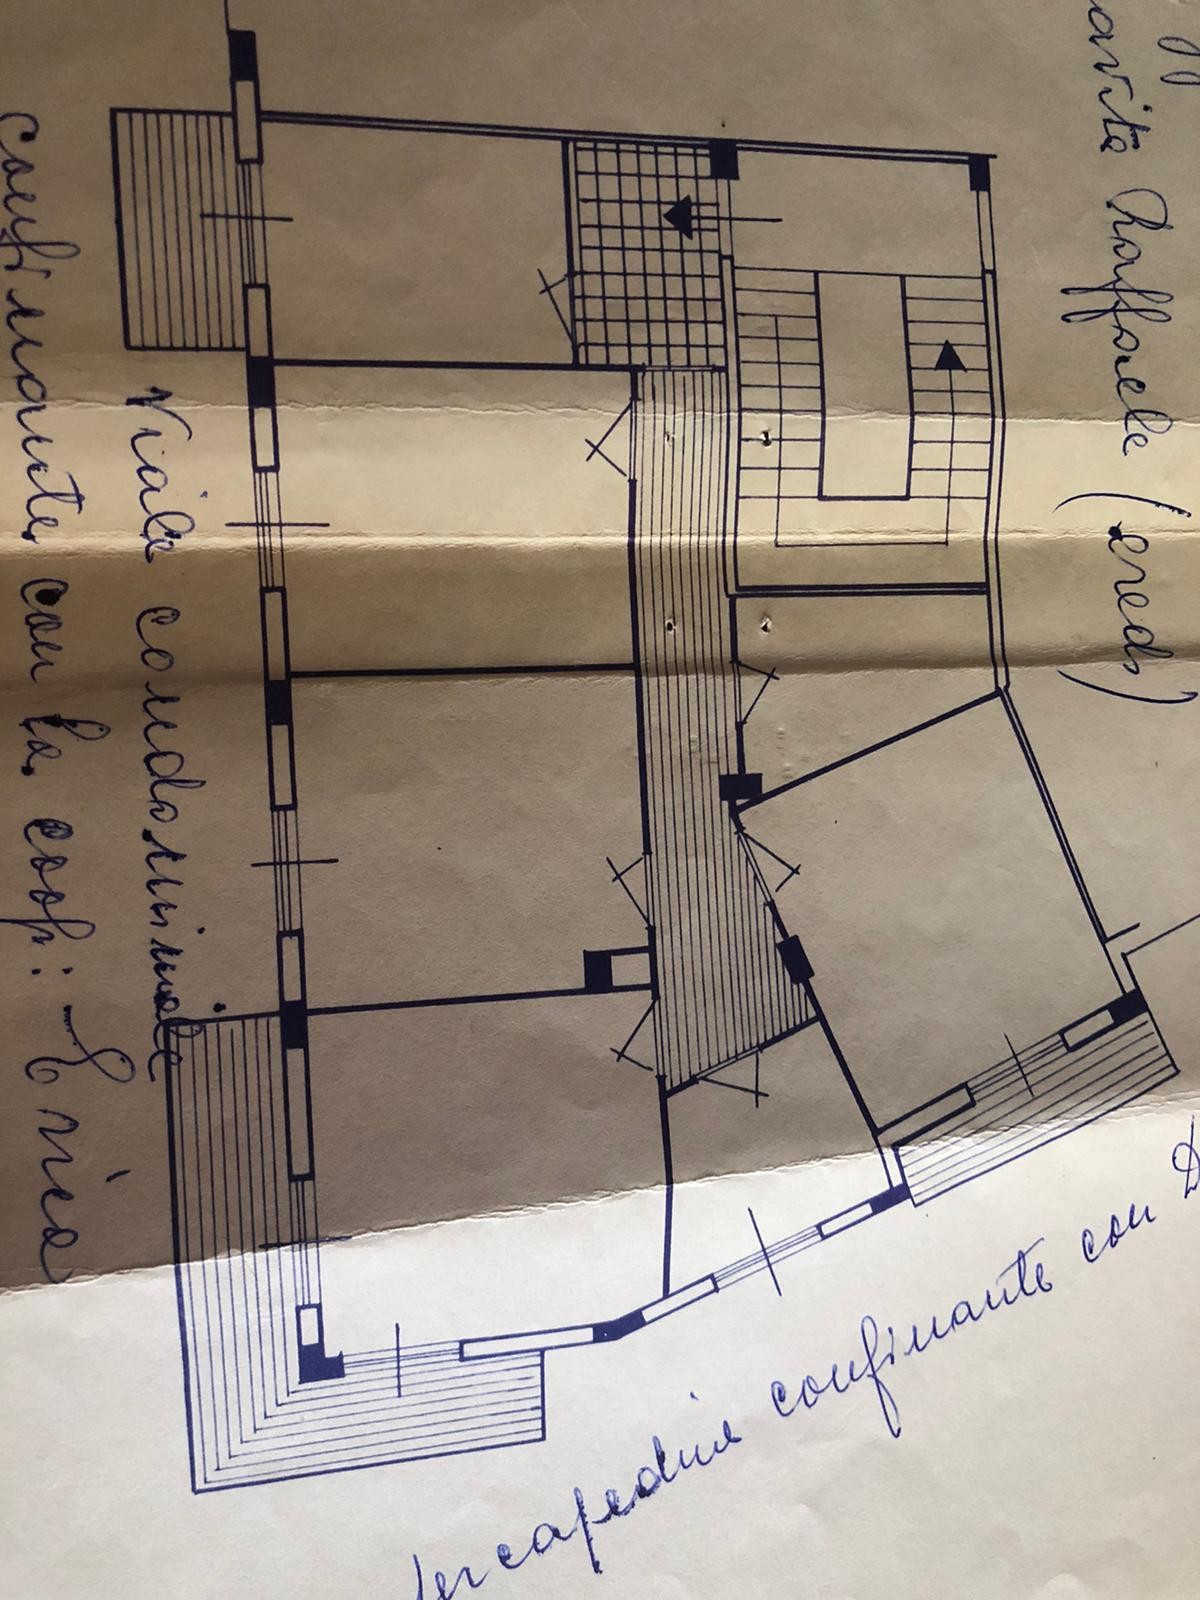 avita Raffaele (eredi)
Viale condominiale
confinante con la coop: Erica
tercapedine confinante con D